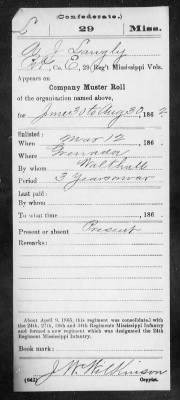 (Confederate.)
L 29 Miss.
A. J. Langly
Co. E, 29 Reg't Mississippi Vols.
Appears on
Company Muster Roll
of the organization named above,
for June 30 to Aug 30, 1862.
Enlisted:
When Mar 12, 186 .
Where Grenada
By whom Walthall
Period 3 years or war
Last paid:
By whom
To what time , 186 .
Present or absent Present
Remarks:
About April 9, 1865, this regiment was consolidated with
the 24th, 27th, 30th and 34th Regiments Mississippi Infantry
and formed a new regiment which was designated the 24th
Regiment Mississippi Infantry.
Book mark:
J. W. Wilkinson
(642) Copyist.